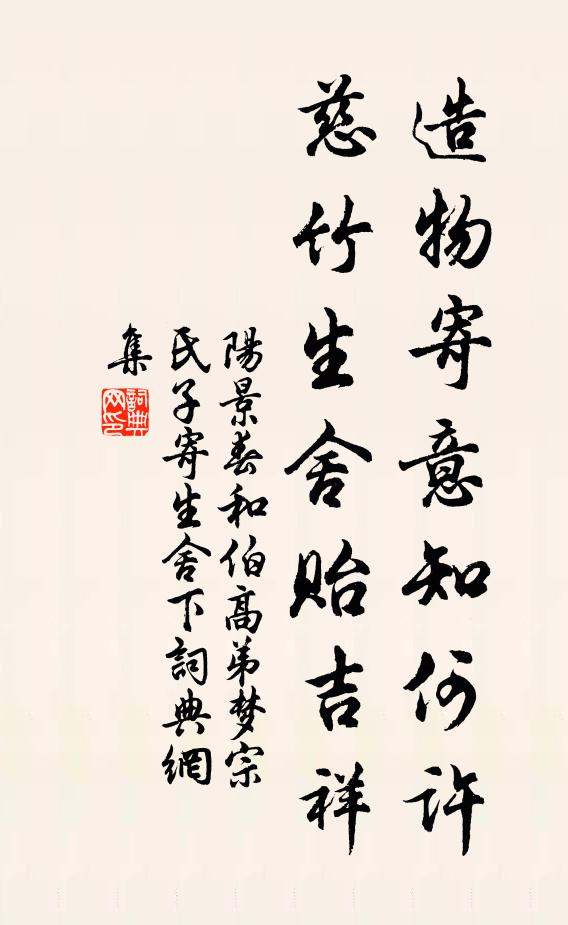 造物寄意知何許
慈竹生舍貽吉祥
陽景春和伯高弟梦宗
氏子寄生舍下詞典網
集
詞典
网印